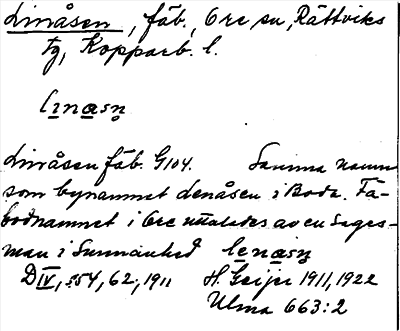 Linåsen, fäb., Ore sn, Rättviks
tg, Kopparb. l.
linasn
Linåsen fäb. G104. Samma namn
som bynamnet Lenåsen i Boda. Fä-
bodnamnet i Ore uttalades av en sages-
man i Sunnanhed lenasn
D IV, s54, 62, 1911 H. Geijer 1911, 1922
Ulma 663:2